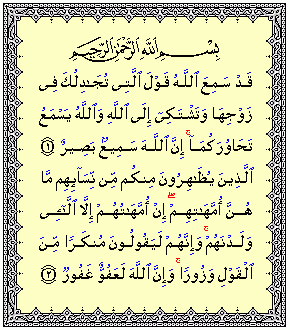 بِسْمِ ٱللَّهِ ٱلرَّحْمَٰنِ ٱلرَّحِيمِ
قَدْ سَمِعَ ٱللَّهُ قَوْلَ ٱلَّتِى تُجَٰدِلُكَ فِى
زَوْجِهَا وَتَشْتَكِىٓ إِلَى ٱللَّهِ وَٱللَّهُ يَسْمَعُ
تَحَاوُرَكُمَآ ۚ إِنَّ ٱللَّهَ سَمِيعٌۢ بَصِيرٌ ١
ٱلَّذِينَ يُظَٰهِرُونَ مِنكُم مِّن نِّسَآئِهِم مَّا
هُنَّ أُمَّهَٰتِهِمْ ۖ إِنْ أُمَّهَٰتُهُمْ إِلَّا ٱلَّٰٓـِٔى
وَلَدْنَهُمْ ۚ وَإِنَّهُمْ لَيَقُولُونَ مُنكَرًا مِّنَ
ٱلْقَوْلِ وَزُورًا ۚ وَإِنَّ ٱللَّهَ لَعَفُوٌّ غَفُورٌ ٢